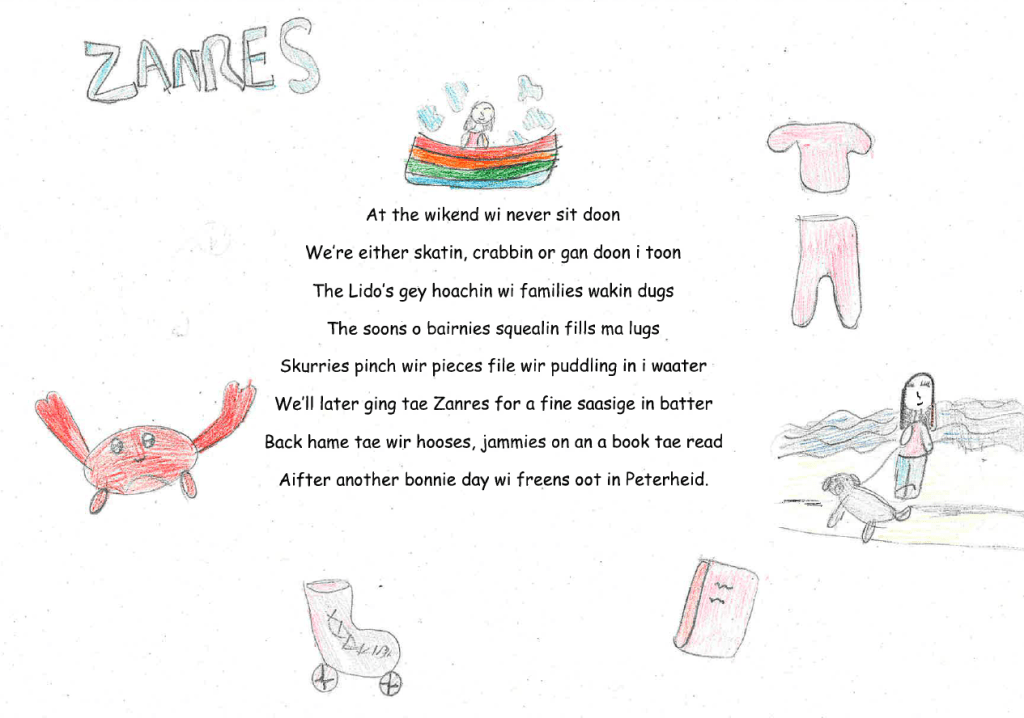 ZANRES
At the wikend wi never sit doon
We're either skatin, crabbin or gan doon i toon
The Lido's gey hoachin wi families wakin dugs
The soons o bairnies squealin fills ma lugs
Skurries pinch wir pieces file wir puddling in i waater
We'll later ging tae Zanres for a fine saasige in batter
Back hame tae wir hooses, jammies on an a book tae read
Aifter another bonnie day wi freens oot in Peterheid.